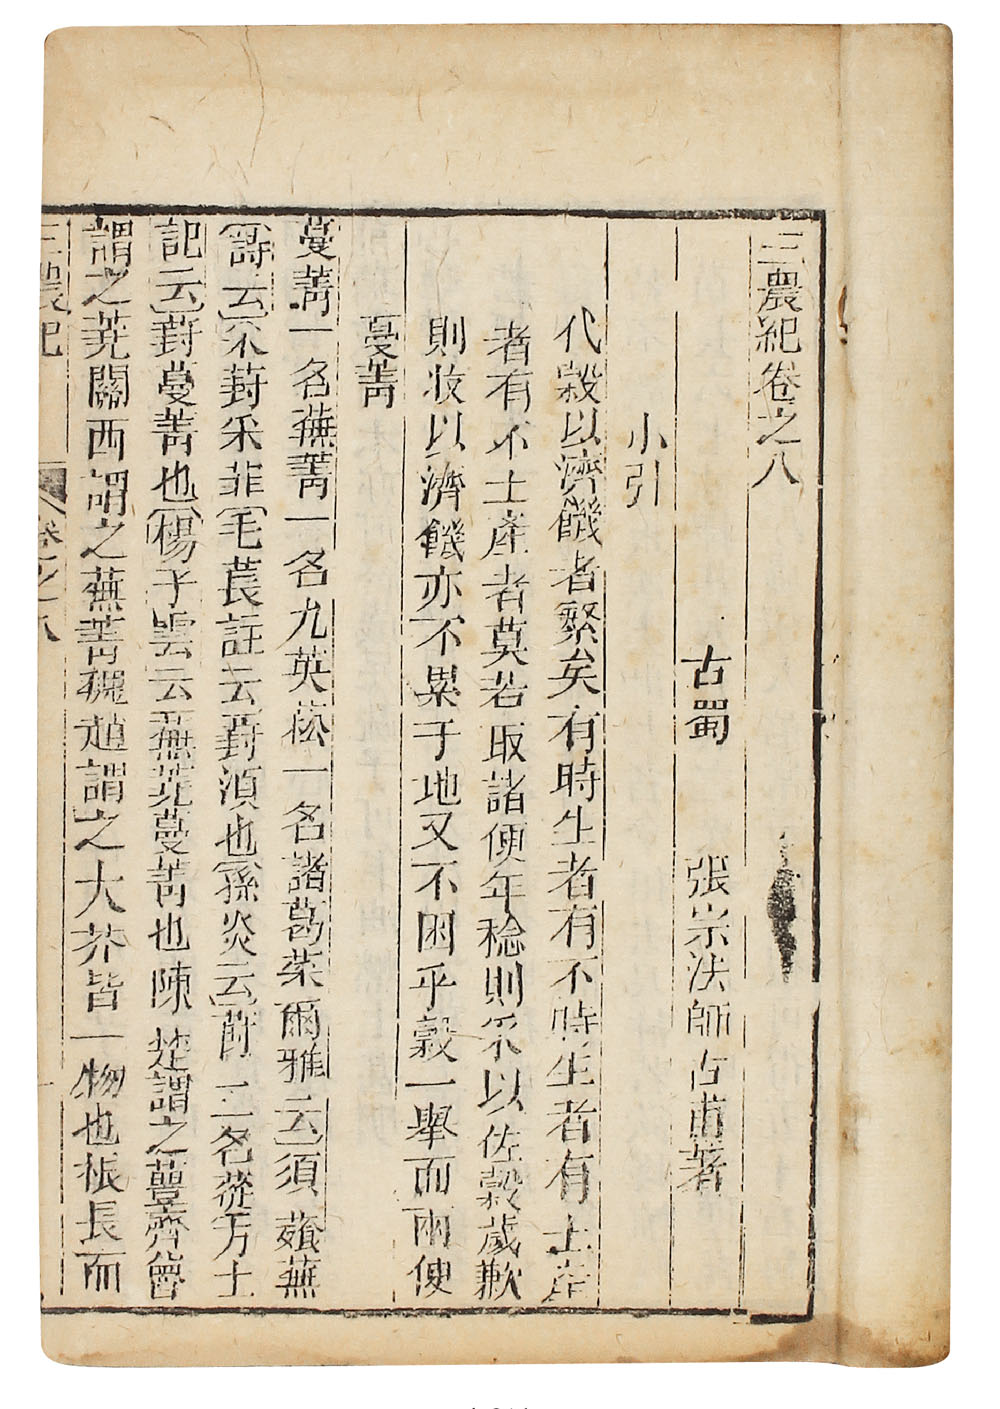 三農紀卷之八
古蜀 張宗法師古甫著
小引
代穀以濟饑者繁矣有時生者有不時生者有土產
者有不土產者莫若取諸便年稔則采以佐穀歲歉
則妝以濟饑亦不累于地又不困乎穀一舉而兩便
蔓菁
蔓菁一名蕪菁一名九英菘一名諸葛菜爾雅云須薞蕪
詩云采葑采菲毛萇註云葑湏也孫炎云葑一名葑蓯方士
記云葑蔓菁也楊子雲云蕪菁也陳楚謂之蘴齊魯
謂之蕘關西謂之蕪菁趙謂之大芥皆一物也根長而
三農紀 卷之八 一